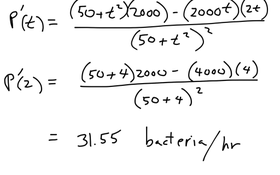 P'(t) = (50+t²)(2000) - (2000t)(2t) / (50+t²)²
P'(2) = (50+4)2000 - (4000)(4) / (50+4)²
= 31.55 bacteria/hr